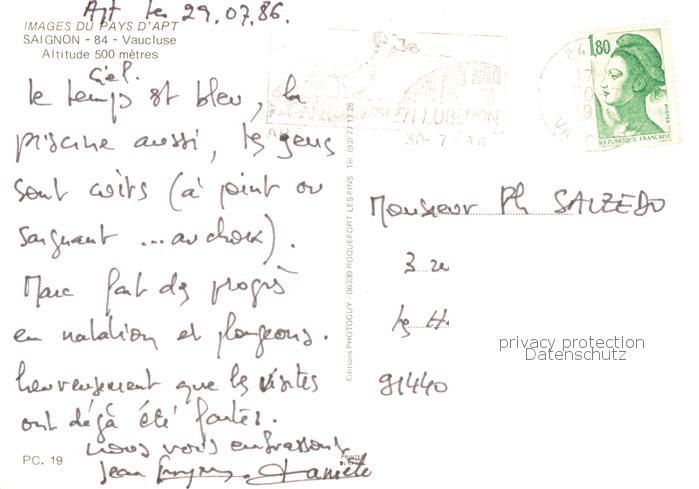 Apt le 29.07.86.
IMAGES DU PAYS D'APT
SAIGNON - 84 - Vaucluse
Altitude 500 mètres
Ciel.
le temps est bleu, la
piscine aussi, les gens
sont cuits (à point ou
saignant ... au choix).
Marc fait des progrès
en natation et plongeons.
heureusement que les visites
ont déjà été faites.
nous vous embrassons
Jean Danièle
PC. 19
Editions PHOTOGUY - 06330 ROQUEFORT LES PINS - Tél. (93) 77 17 28
EN LUBERON
30-7-
1,80
POSTES
REPUBLIQUE FRANÇAISE
Monsieur Ph SALZEDO
3
les H
91440
privacy protection
Datenschutz